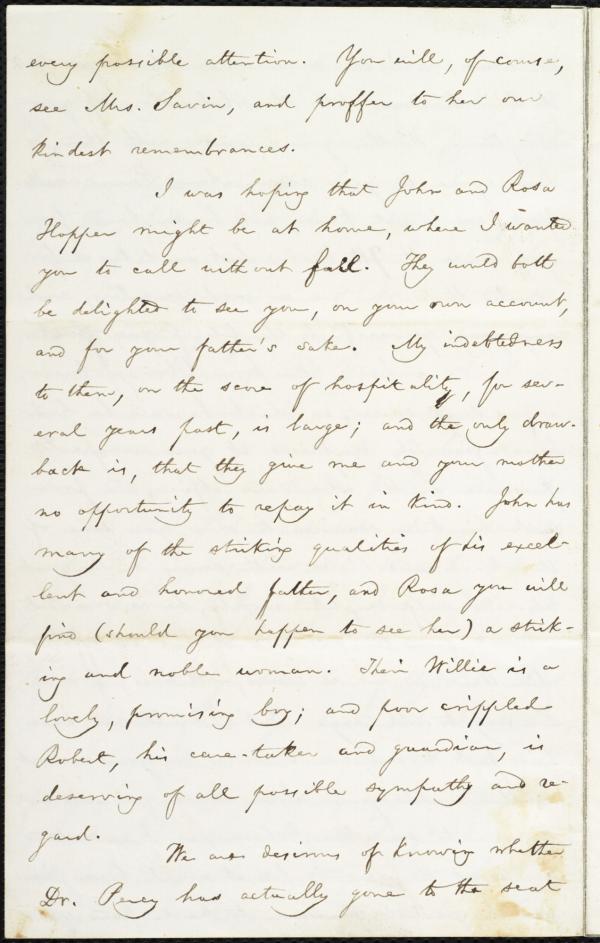 every possible attention. You will, of course,
see Mrs. Savin, and proffer to her our
kindest remembrances.
I was hoping that John and Rosa
Hopper might be at home, where I wanted
you to call without fail. They would both
be delighted to see you, on your own account,
and for your father's sake. My indebtedness
to them, on the score of hospitality, for sev-
eral years past, is large; and the only draw-
back is, that they give me and your mother
no opportunity to repay it in kind. John has
many of the striking qualities of his excel-
lent and honored father, and Rosa you will
find (should you happen to see her) a strik-
ing and noble woman. Their Willie is a
lovely, promising boy; and poor crippled
Robert, his care-taker and guardian, is
deserving of all possible sympathy and re-
gard.
We are desirous of knowing whether
Dr. Percy has actually gone to the seat